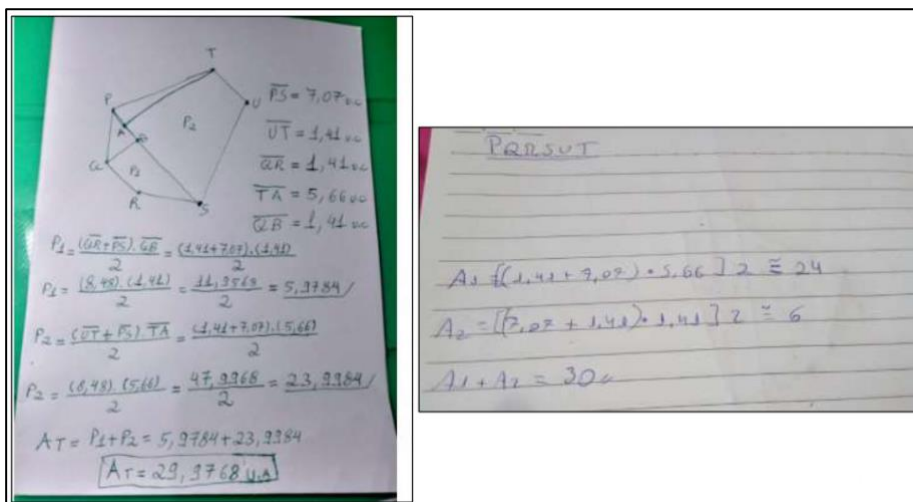 T
P
U
A
B
P2
Q
P1
R
S
PS = 7,07 u.c
UT = 1,41 u.c
QR = 1,41 u.c
TA = 5,66 u.c
QB = 1,41 u.c
P1 = (QR+PS).QB/2 = (1,41+7,07).(1,41)/2
P1 = (8,48).(1,41)/2 = 11,9568/2 = 5,9784/
P2 = (UT+PS).TA/2 = (1,41+7,07).(5,66)/2
P2 = (8,48).(5,66)/2 = 47,9968/2 = 23,9984/
AT = P1+P2 = 5,9784+23,9984
AT = 29,9768 u.A
PQRSUT
A1 = [(1,41+7,07)•5,66] 2 ≅ 24
A2 = [(7,07+1,41)•1,41] 2 ≅ 6
A1+A2 = 30